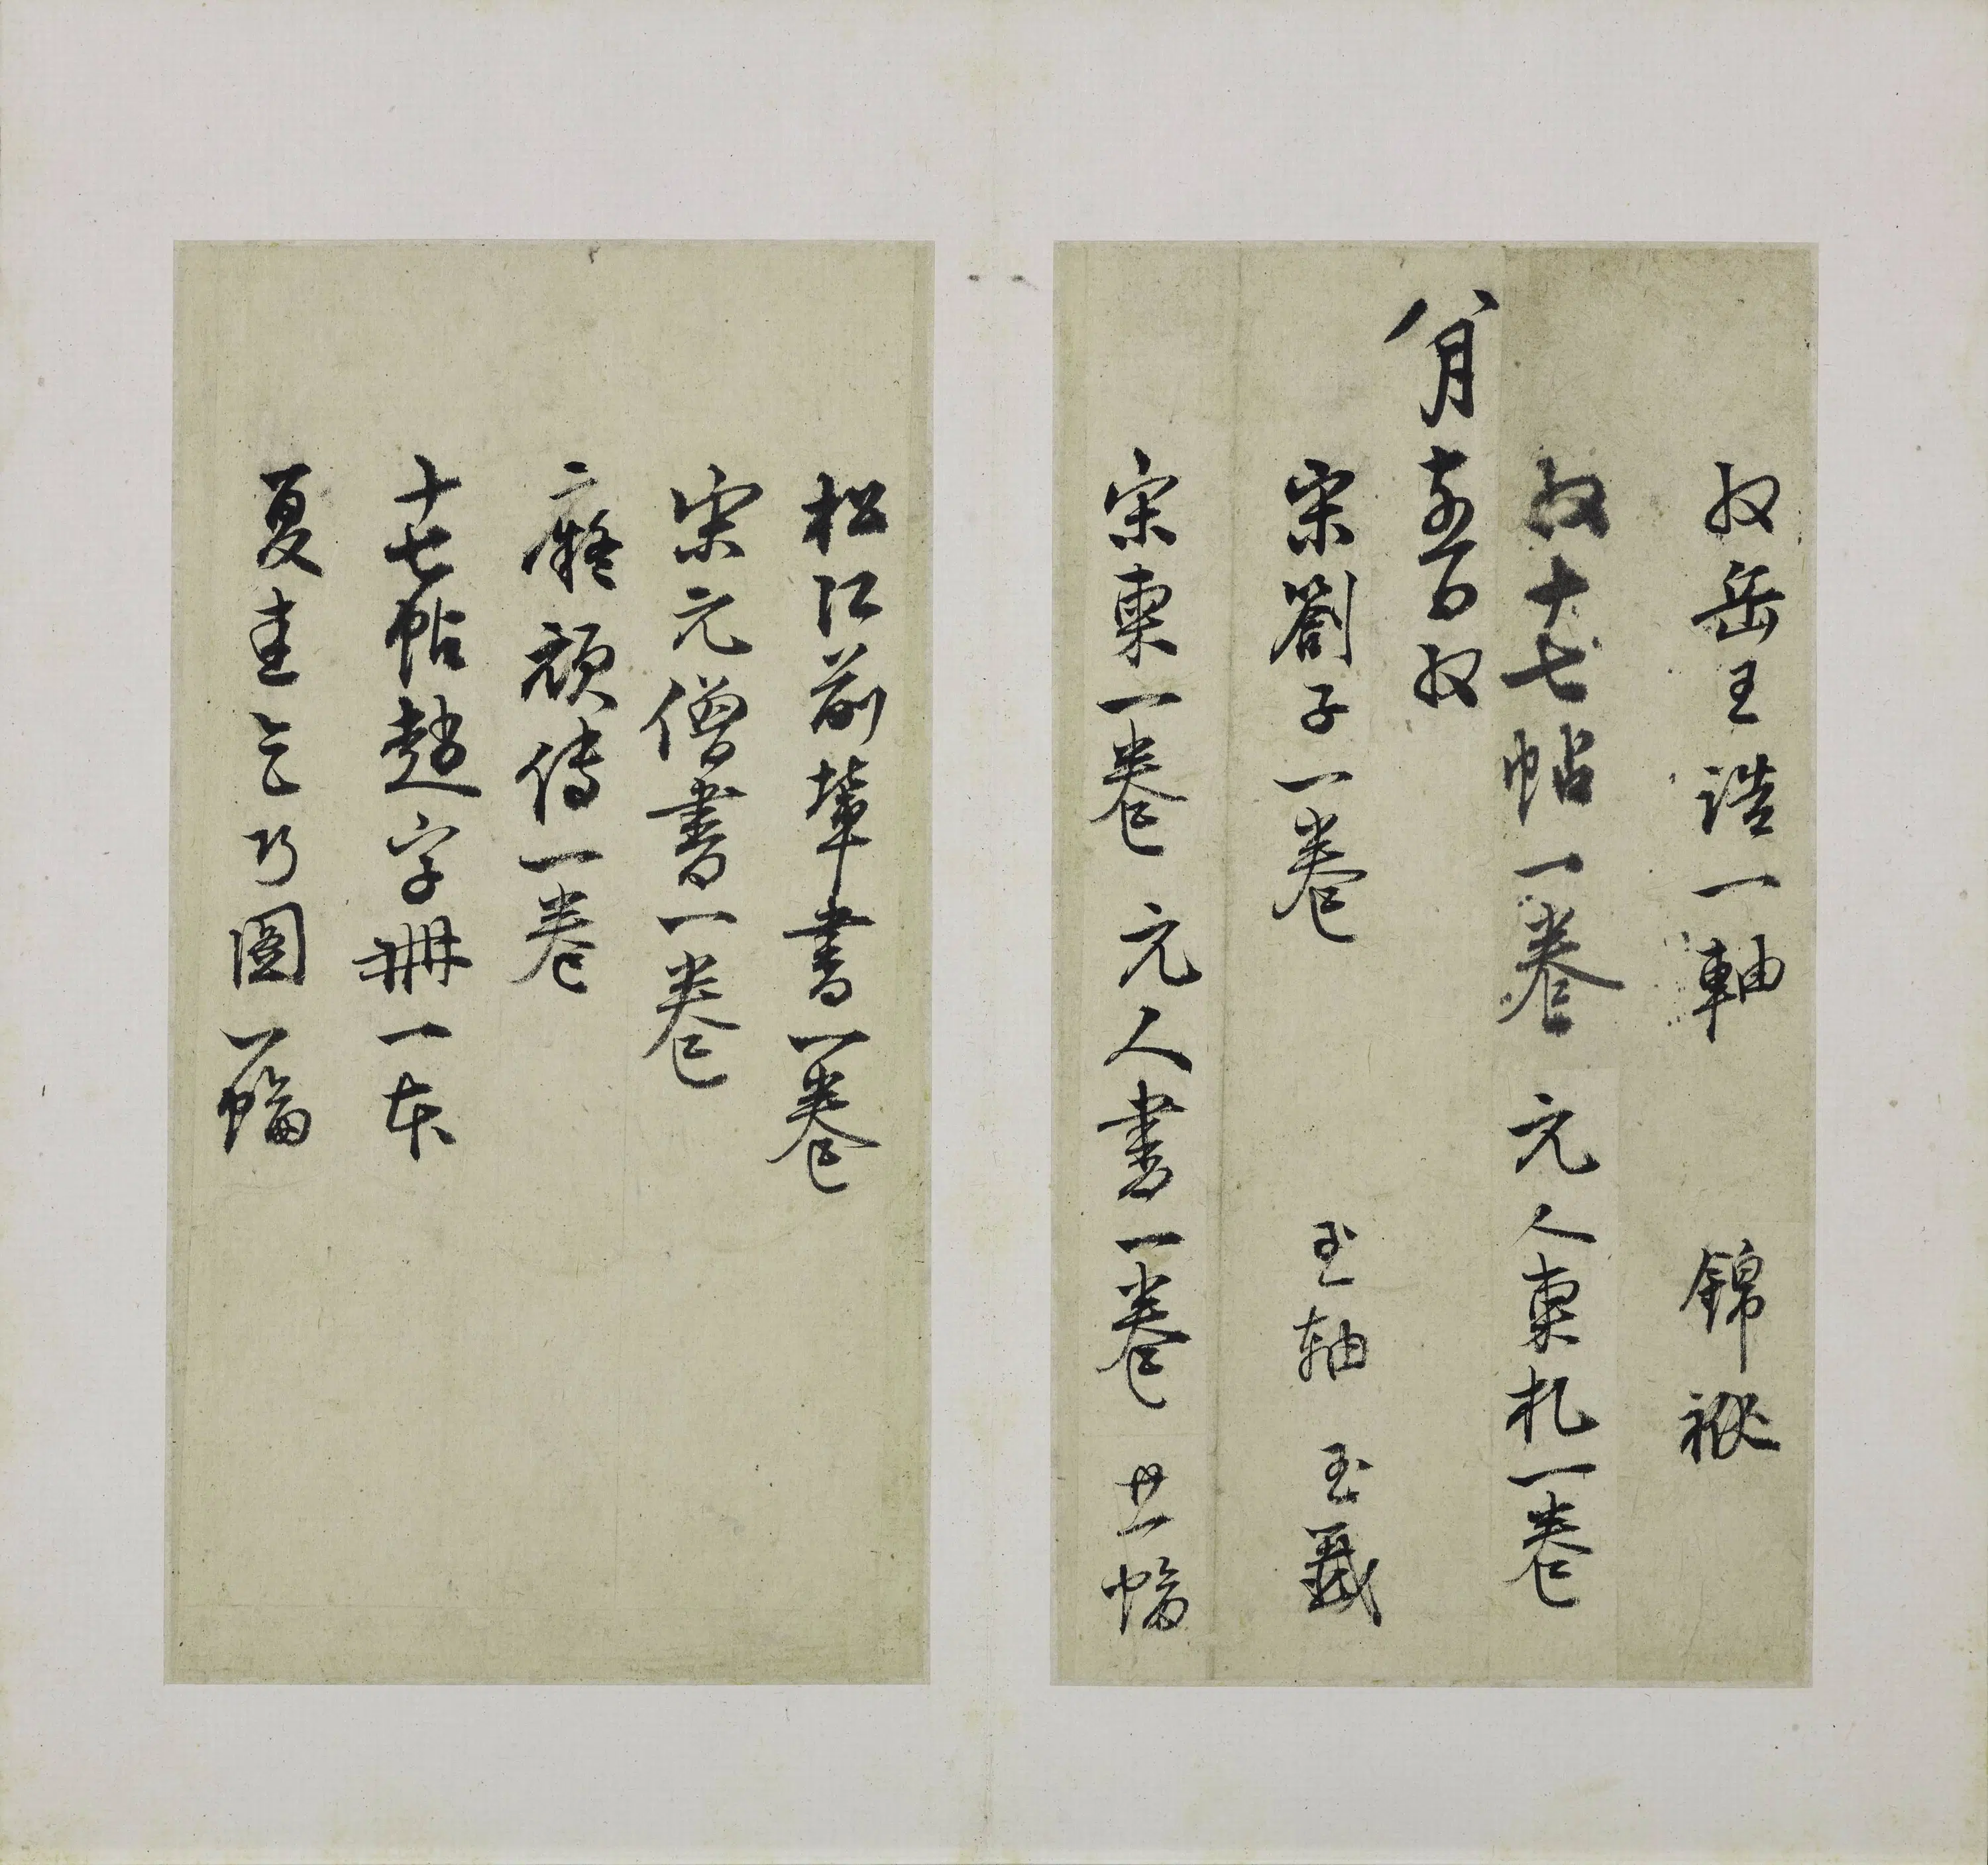 収岳王誥一軸 錦袱
収十七帖一卷 元人柬札一卷
八月十五日収
宋劄子一卷 玉軸 玉籤
宋柬一卷 元人書一卷 廿一幅
松江前輩書一卷
宋元僧書一卷
癡頑傳一卷
十七帖趙字冊一本
夏圭乞巧圖一幅